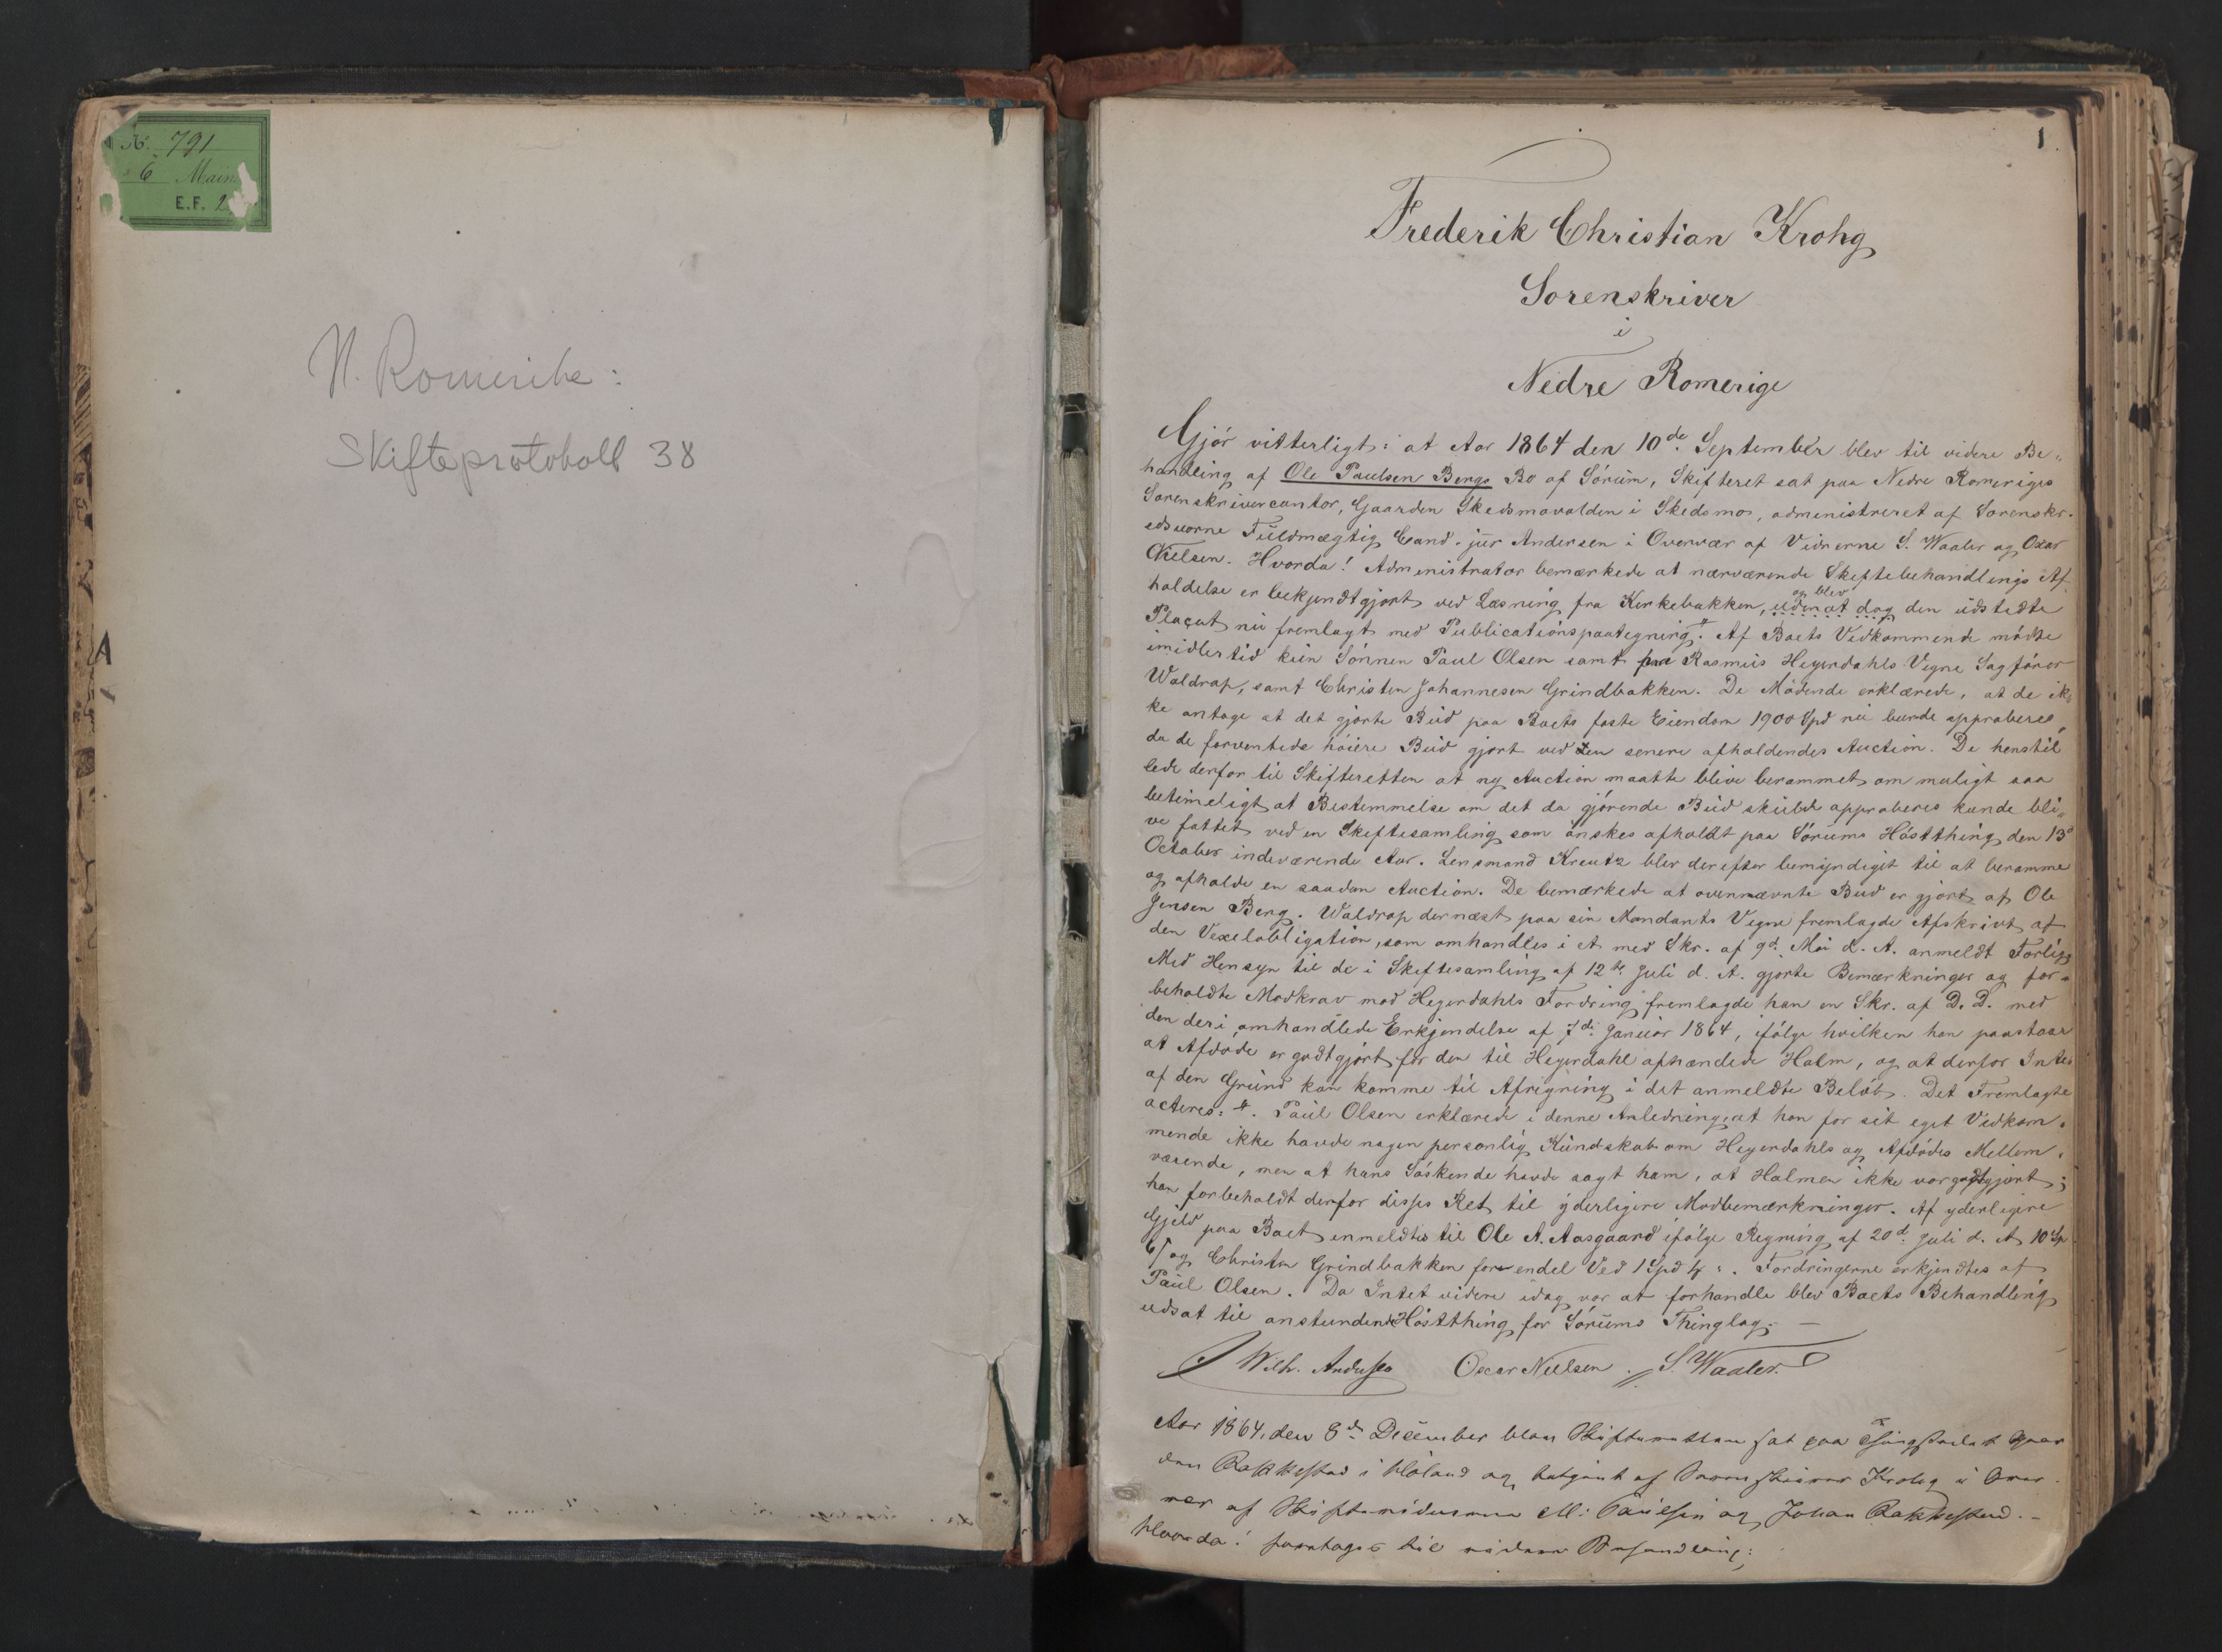 No. 791
6 Main
E.F. 2
N. Romerike:
Skifteprotokoll 38
1
Frederik Christian Krohg
Sorenskriver
i
Nedre Romerige
Gjør vitterligt: at Aar 1864 den 10de September blev til videre Be-
handling af Ole Paulsen Bergs Bo af Sørum, Skifteret sat paa Nedre Romeriges
Sorenskrivercontor, Gaarden Skedsmovolden i Skedsmo, administreret af Sorenskr.
edsvorne Fuldmægtig Cand. jur Andersen i Overvær af Vidnerne S. Waaler og Oscar
Nielsen. Hvorda! Administrator bemærkede at nærværende Skiftebehandlings Af-
holdelse er bekjendtgjort ved Læsning fra Kirkebakken, uden at dog og blev den udstedte
Placat nu fremlagt med Publicationspaategning #. Af Boets Vedkommende mødte
imidlertid kun Sønnen Paul Olsen samt paa Rasmus Heyerdahls Vegne Sagfører
Woldrap, samt Christen Johannesen Grindbakken. De Mødende erklærede, at de ik-
ke antage at det gjorte Bud paa Boets faste Eiendom 1900 Spd nu burde approberes,
da de forventede høiere Bud gjort ved den senere afholdendes Auction. De henstil-
lede derfor til Skifteretten at ny Auction maatte blive berammet om muligt saa
betimeligt at Bestemmelse om det da gjørende Bud skulde approberes kunde bli-
ve fattet ved en Skiftesamling som ønskes afholdt paa Sørums Høstthing den 13d
October indeværende Aar. Lensmand Kreutz blev derefter bemyndiget til at beramme
og afholde en saadan Auction. De bemærkede at ovennævnte Bud er gjort af Ole
Jensen Berg. Woldrap dernæst paa sin Mandants Vegne fremlagde Afskrivt af
den Vexelobligation, som omhandles i et med Skr. af 9d Mai d. A. anmeldt Forlig
Med Hensyn til de i Skiftesamling af 12te Juli d. A. gjorte Bemærkninger og for-
beholdte Modkrav mod Heyerdahls Fordring fremlagde han en Skr. af D. D. med
den deri omhandlede Erkjendelse af 7de Januar 1864, ifølge hvilken han paastaar
at Afdøde er godtgjort for den til Heyerdahl afhændede Halm, og at derfor Intet
af den Grund kan komme til Afregning i det anmeldte Beløb. Det Fremlagte
acteres: #. Paul Olsen erklærede i denne Anledning, at han for sit eget Vedkom-
mende ikke havde nogen personlig Kundskab om Heyerdahls og Afdødes Mellem-
værende, men at hans Søskende havde sagt ham, at Halmen ikke var godtgjort;
han forbeholdt derfor disses Ret til yderligere Modbemærkninger. Af yderligere
Gjeld paa Boet anmeldtes til Ole A. Aasgaard ifølge Regning af 20d Juli d. A 10 Sp
6/ og Christen Grindbakken for endel Ved 1 Spd 4 ". Fordringerne erkjendtes af
Paul Olsen. Da Intet videre idag var at forhandle blev Boets Behandling
udsat til anstundende Høstthing for Sørums Thinglag. —
Wilh. Andersen Oscar Nielsen. S. Waaler.
Aar 1864, den 8de December blev Skifteretten sat paa Thingstedet Gaar-
den Rakkestad i Høland og betjent af Sorenskriver Krohg i Over-
vær af Skiftevidnerne M: Paulsen og Johan Rakkestad. -
Hvorda! foretages til videre Behandling: